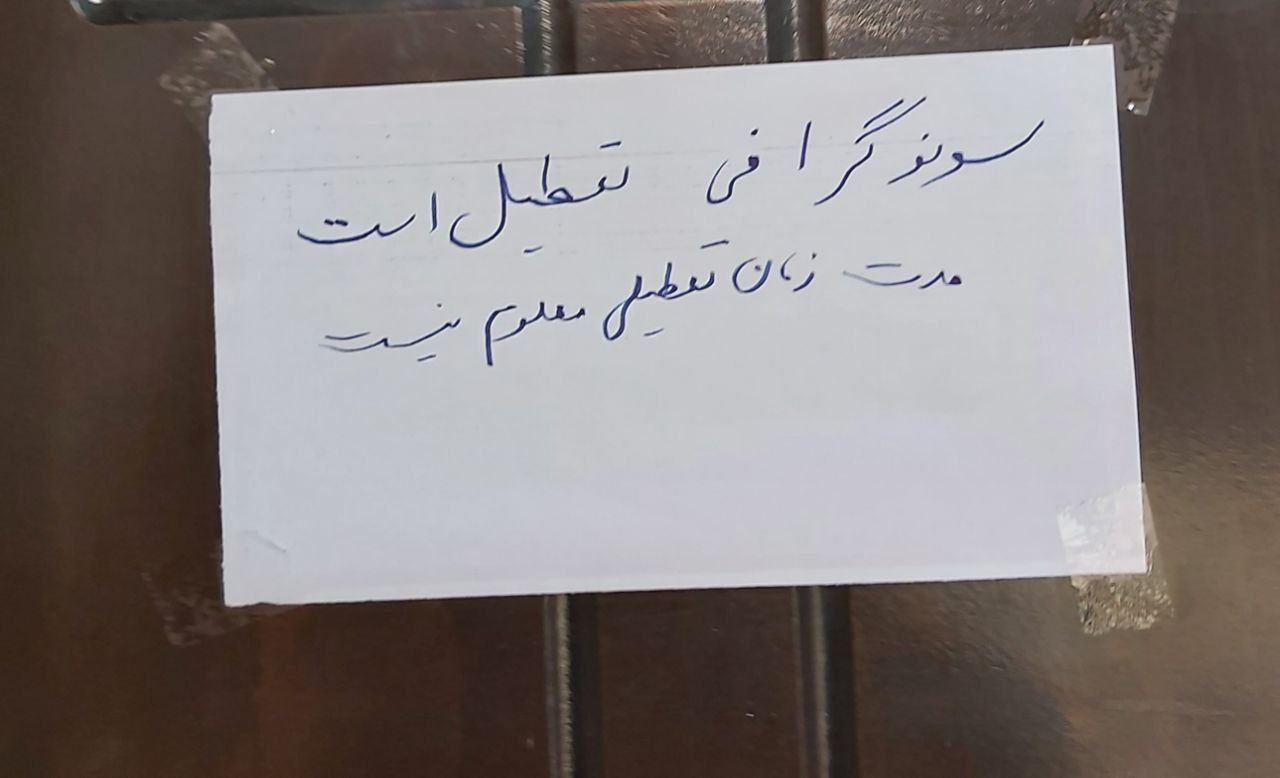 سونوگرافی تعطیل است
مدت زمان تعطیلی معلوم نیست